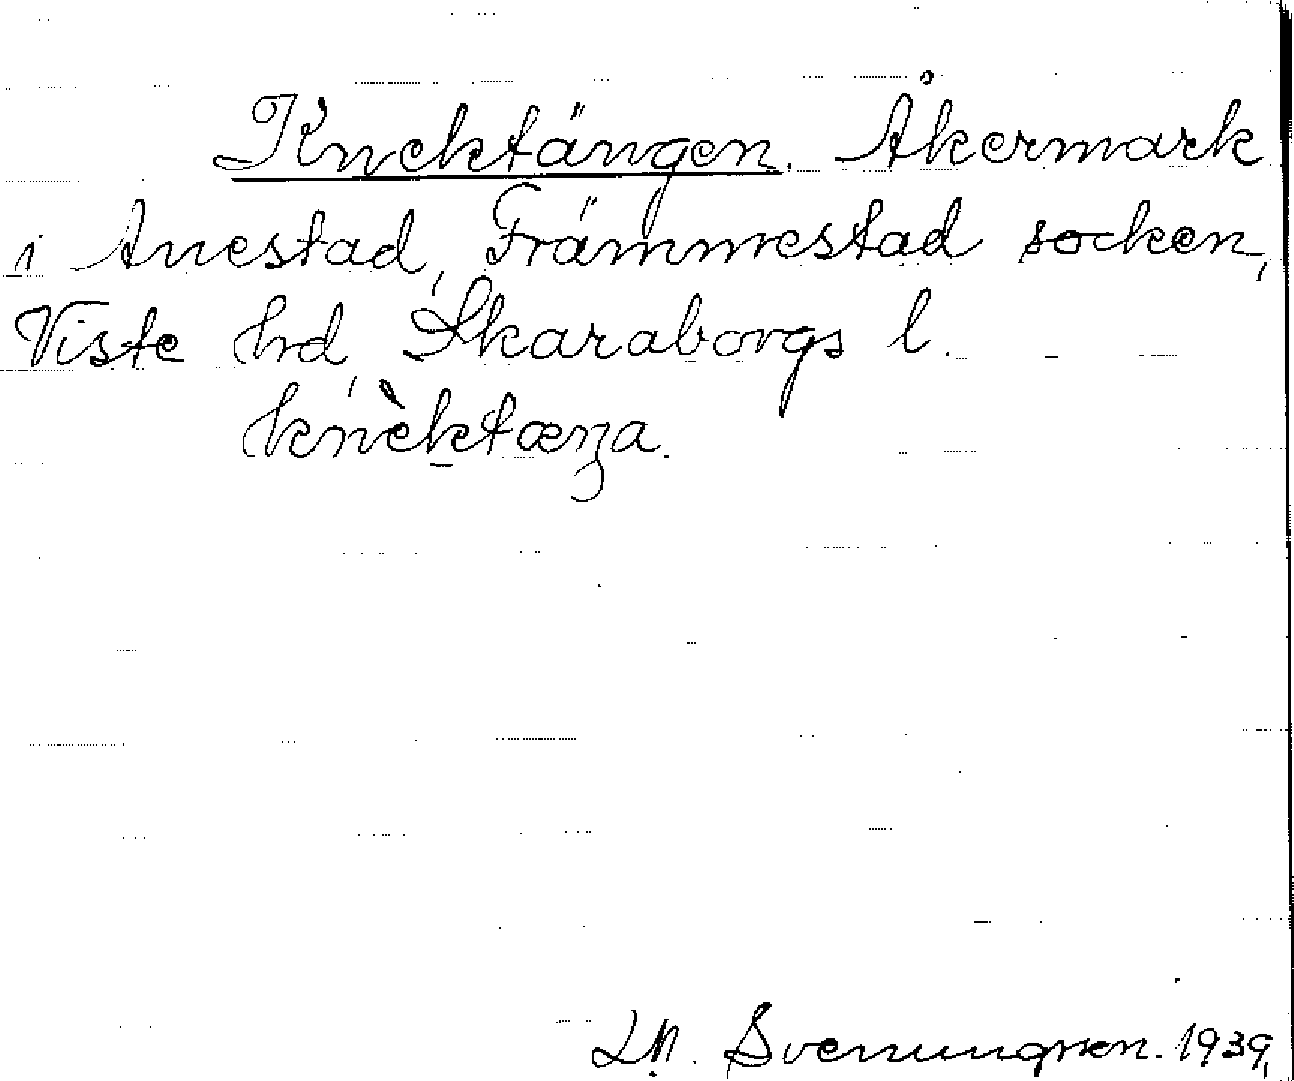 Knektängen. Åkermark
i Anestad, Främmestad socken,
Viste hd, Skaraborgs l.
knèktæŋa.
Svenungsson. 1939,